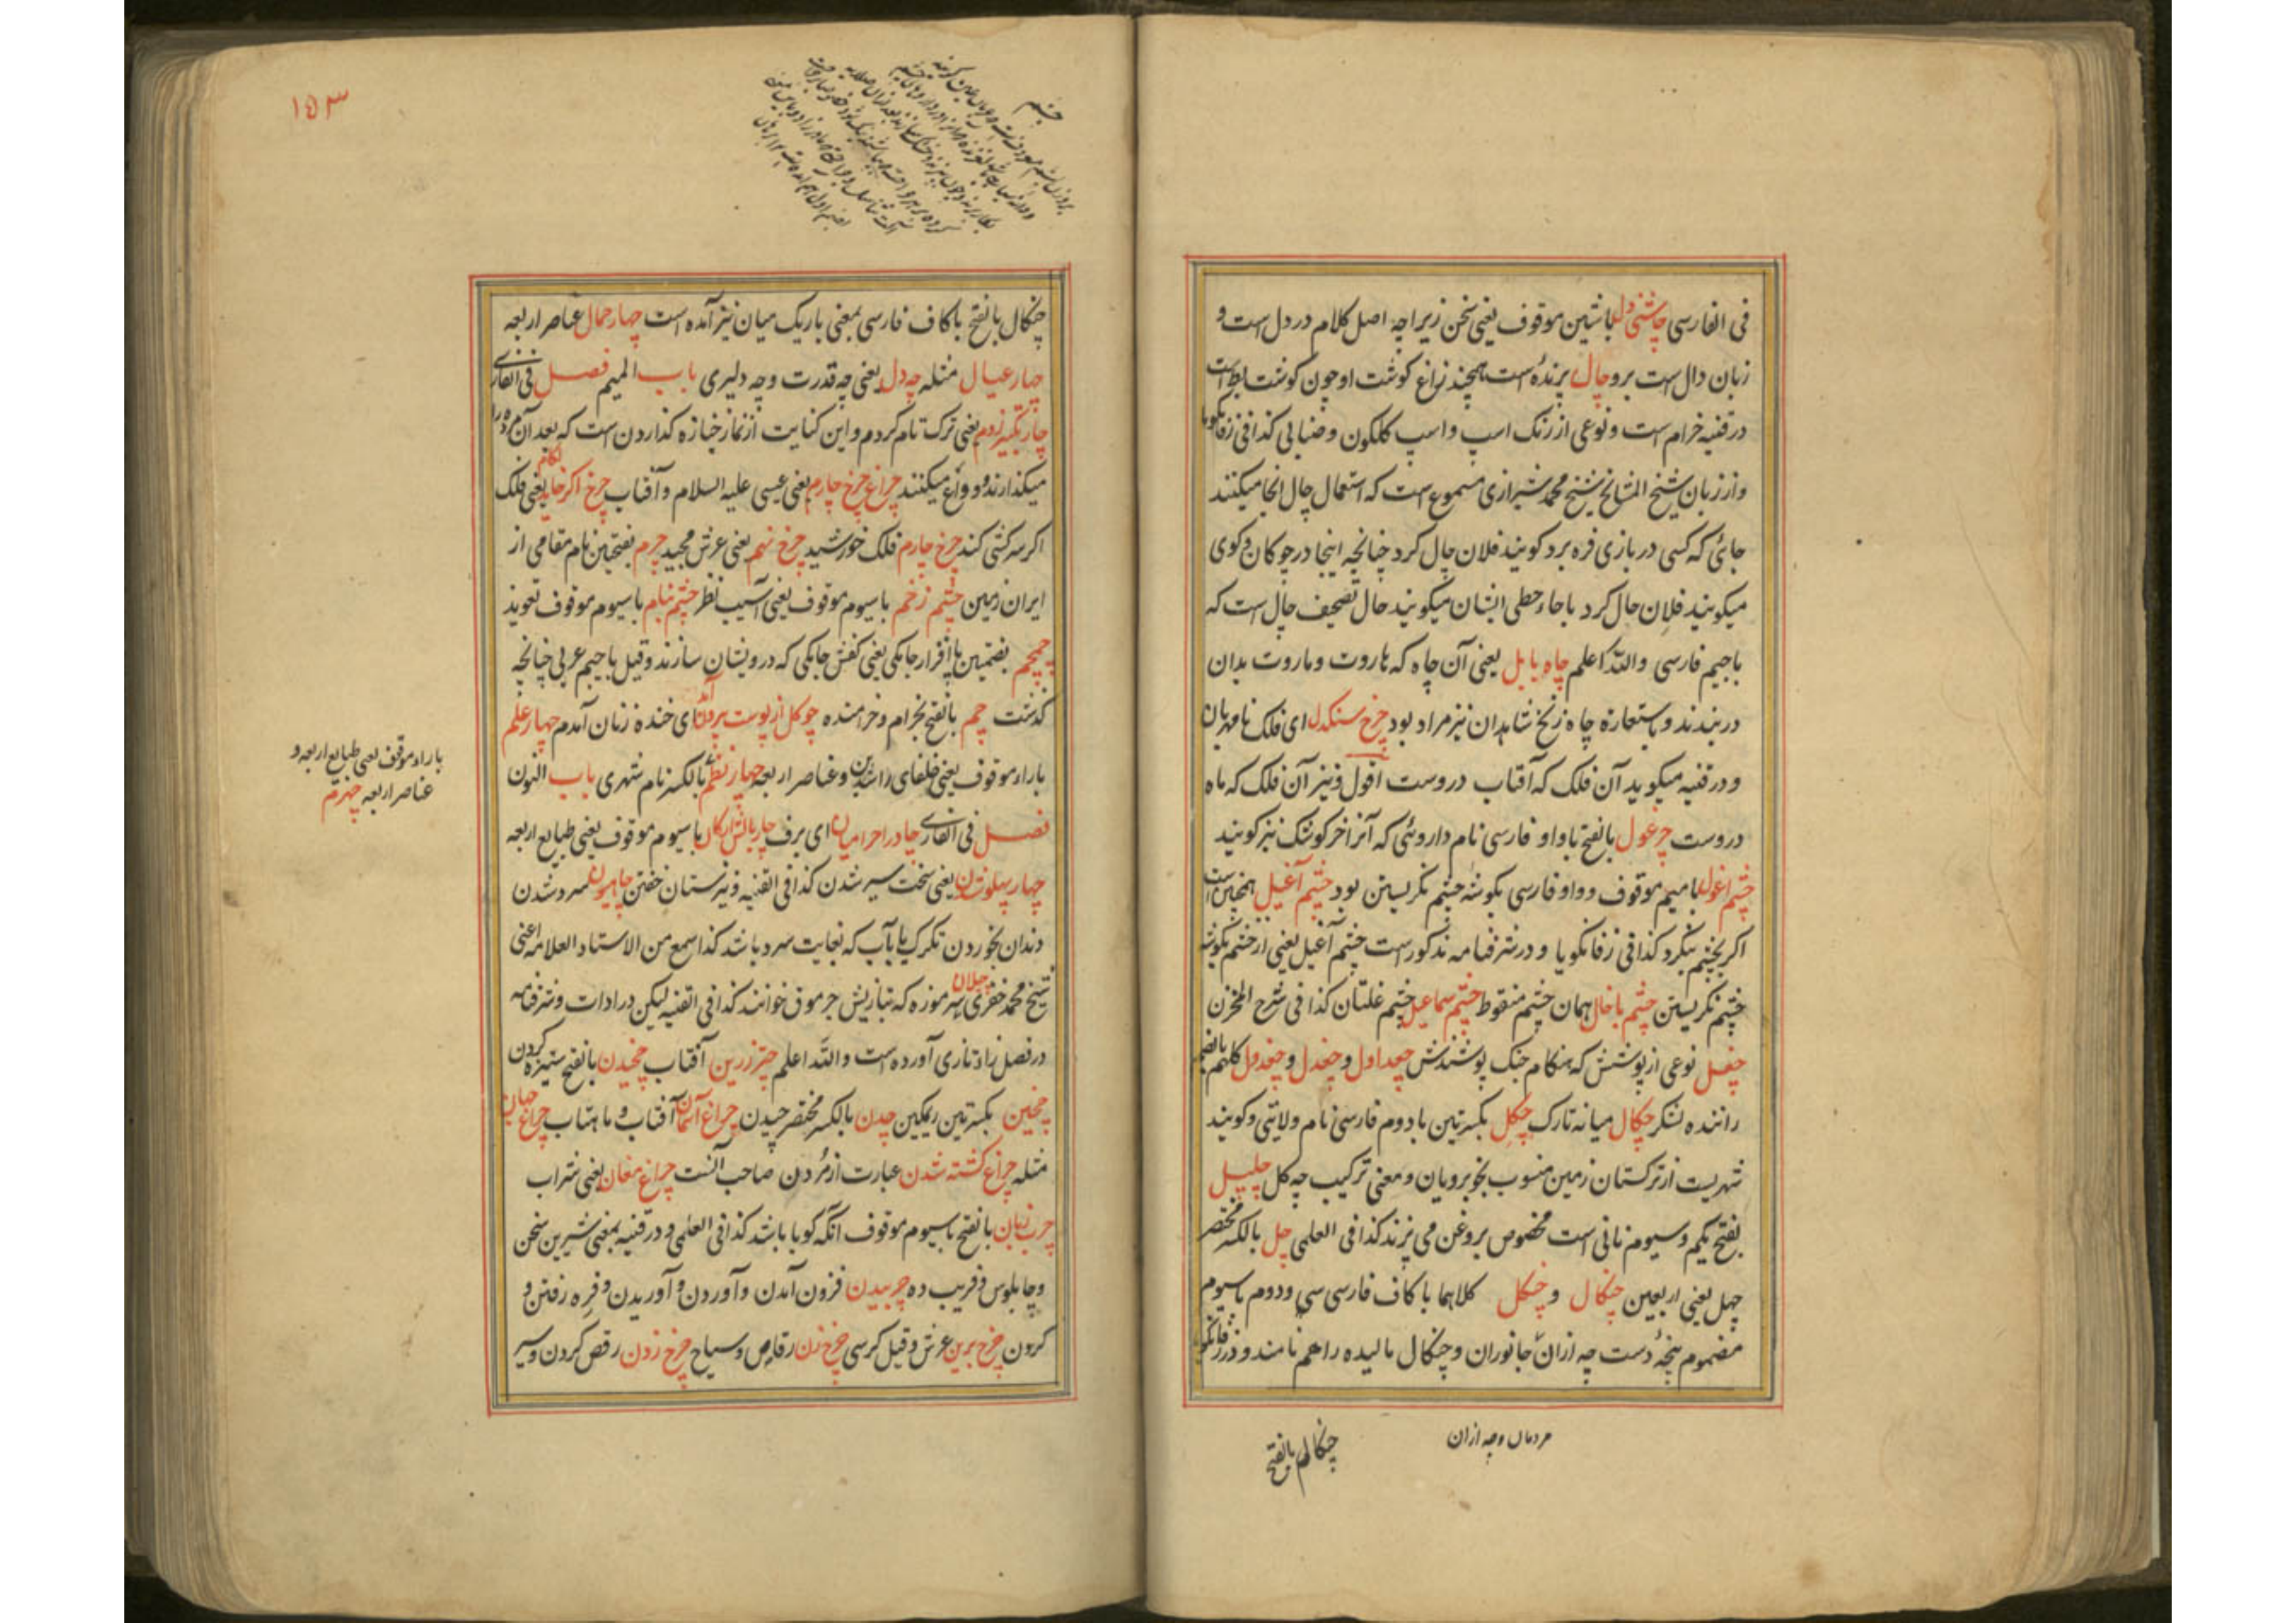 فی الفارسی چاشنی دل باشین موقوف یعنی سخن زیراچه اصل کلام در دل است و
زبان دال است برو چال پرنده است همچند زاغ گوشت او چون گوشت بط است
در قنیه خرام است و نوعی از رنک اسپ و اسپ کلکون و ضیابی کذا فی زفانکویا
و از زبان شیخ المشایخ شیخ محمد شیرازی مسموع است که استعمال چال انجا میکنند
جائی که کسی در بازی فره برد کویند فلان چال کرد چنانچه اینجا در چوکان و کوی
میکویند فلان حال کرد باحاء حطی ایشان میکویند حال تصحیف چال است که
باجیم فارسی والله اعلم چاه بابل یعنی آن چاه که هاروت و ماروت بدان
در بندند و باستعاره چاه زنخ شاهدان نیز مراد بود چرخ سنکدل ای فلک نامهربان
و در قنیه میکوید آن فلک که آفتاب دروست اقول و نیز آن فلک که ماه
دروست چرغول بالفتح باواو فارسی نام داروئی که آنرا خرکوشک نیز کویند
چشم اغول بامیم موقوف و واو فارسی بکوشه چشم نکریستن بود چشم آغیل همچنین است
اکر بخشم بنکرد کذا فی زفانکویا و در شرفنامه مذکور است چشم آغیل یعنی از خشم بکوشه
چشم نکریستن چشم باخال همان چشم منقوط چشم سماعیل چشم غلتان کذا فی شرح المخزن
چغل نوعی از پوشش که هنکام جنک پوشندش چغداول و چغدل و چغدول کلهم بالضم
راننده لشکر چکال میانه تارک چکل بکسرتین بادوم فارسی نام ولایتی و کویند
شهریست از ترکستان زمین منسوب بخوبرویان و معنی ترکیب چه کل چلپل
بفتح یکم و سیوم نانی است مخصوص بروغن می پزند کذا فی العلمی چل بالکسر مختصر
چهل یعنی اربعین چنکال و چنکل کلاهما باکاف فارسی سی و دوم باسیوم
مضموم پنجه دست چه ازان جانوران و چنکال مالیده را هم نامند و در زفانکویا
مردمان و چه ازان
چنکال بالفتح
۱۵۳
چشم
چنکال بالفتح باکاف فارسی بمعنی باریک میان نیز آمده است چهار حمال عناصر اربعه
چهار عیال مثله چه دل یعنی چه قدرت و چه دلیری باب المیم فصل فی الفارسی
چار تکبیر زدم یعنی ترک تمام کردم و این کنایت از نماز جنازه کذاردن است که بعد آن مرده را
میکذارند و وداع میکنند چراغ چرخ چارم یعنی عیسی علیه السلام و آفتاب چرخ اکر خاید لکام یعنی فلک
اکر سرکشی کند چرخ چارم فلک خورشید چرخ نهم یعنی عرش مجید چرم بفتحتین نام مقامی از
ایران زمین چشم زخم باسیوم موقوف یعنی آسیب نظر چشم پنام باسیوم موقوف تعویذ
چمچم بضمتین پاافزار جامکی یعنی کفش جامکی که درویشان سازند و قیل باجیم عربی چنانچه
کذشت چم بالفتح بخرام و خرامنده چو کل از پوست برون آمد ای خنده زنان آمدم چهار علم
باراء موقوف یعنی خلفای راشدین و عناصر اربعه چهار نظم بالکسر نام شهری باب النون
فصل فی الفارسی چادر احرامیان ای برف چار بالش ارکان باسیوم موقوف یعنی طبایع اربعه
چهار پهلو شدن یعنی سخت سیر شدن کذا فی القنیه و نیز ستان خفتن چاهیدن سرد شدن
دندان بخوردن تکرک یا بآب که بغایت سرد باشد کذا سمع من الاستاد العلامه اعنی
شیخ محمد خضری چپلان سرموزه که بتازیش جرموق خوانند کذا فی القنیه لیکن در ادات و شرفنامه
در فصل زاء تازی آورده است والله اعلم چتر زرین آفتاب چخیدن بالفتح ستیزه کردن
چخین بکسرتین ریمکین چدن بالکسر مختصر چیدن چراغ آسمان آفتاب و ماهتاب چراغ جهان
مثله چراغ کشته شدن عبارت از مردن صاحب آنست چراغ مغان یعنی شراب
چرب زبان بالفتح باسیوم موقوف آنکه کویا باشد کذا فی العلمی و در قنیه بمعنی شیرین سخن
و چاپلوس و فریب ده چربیدن فزون آمدن و آوردن و آوریدن و فره رفتن و
کردن چرخ برین عرش و قیل کرسی چرخ زن رقاص و سیاح چرخ زدن رقص کردن و سیر
باراء موقوف یعنی طبایع اربعه و
عناصر اربعه چهرم